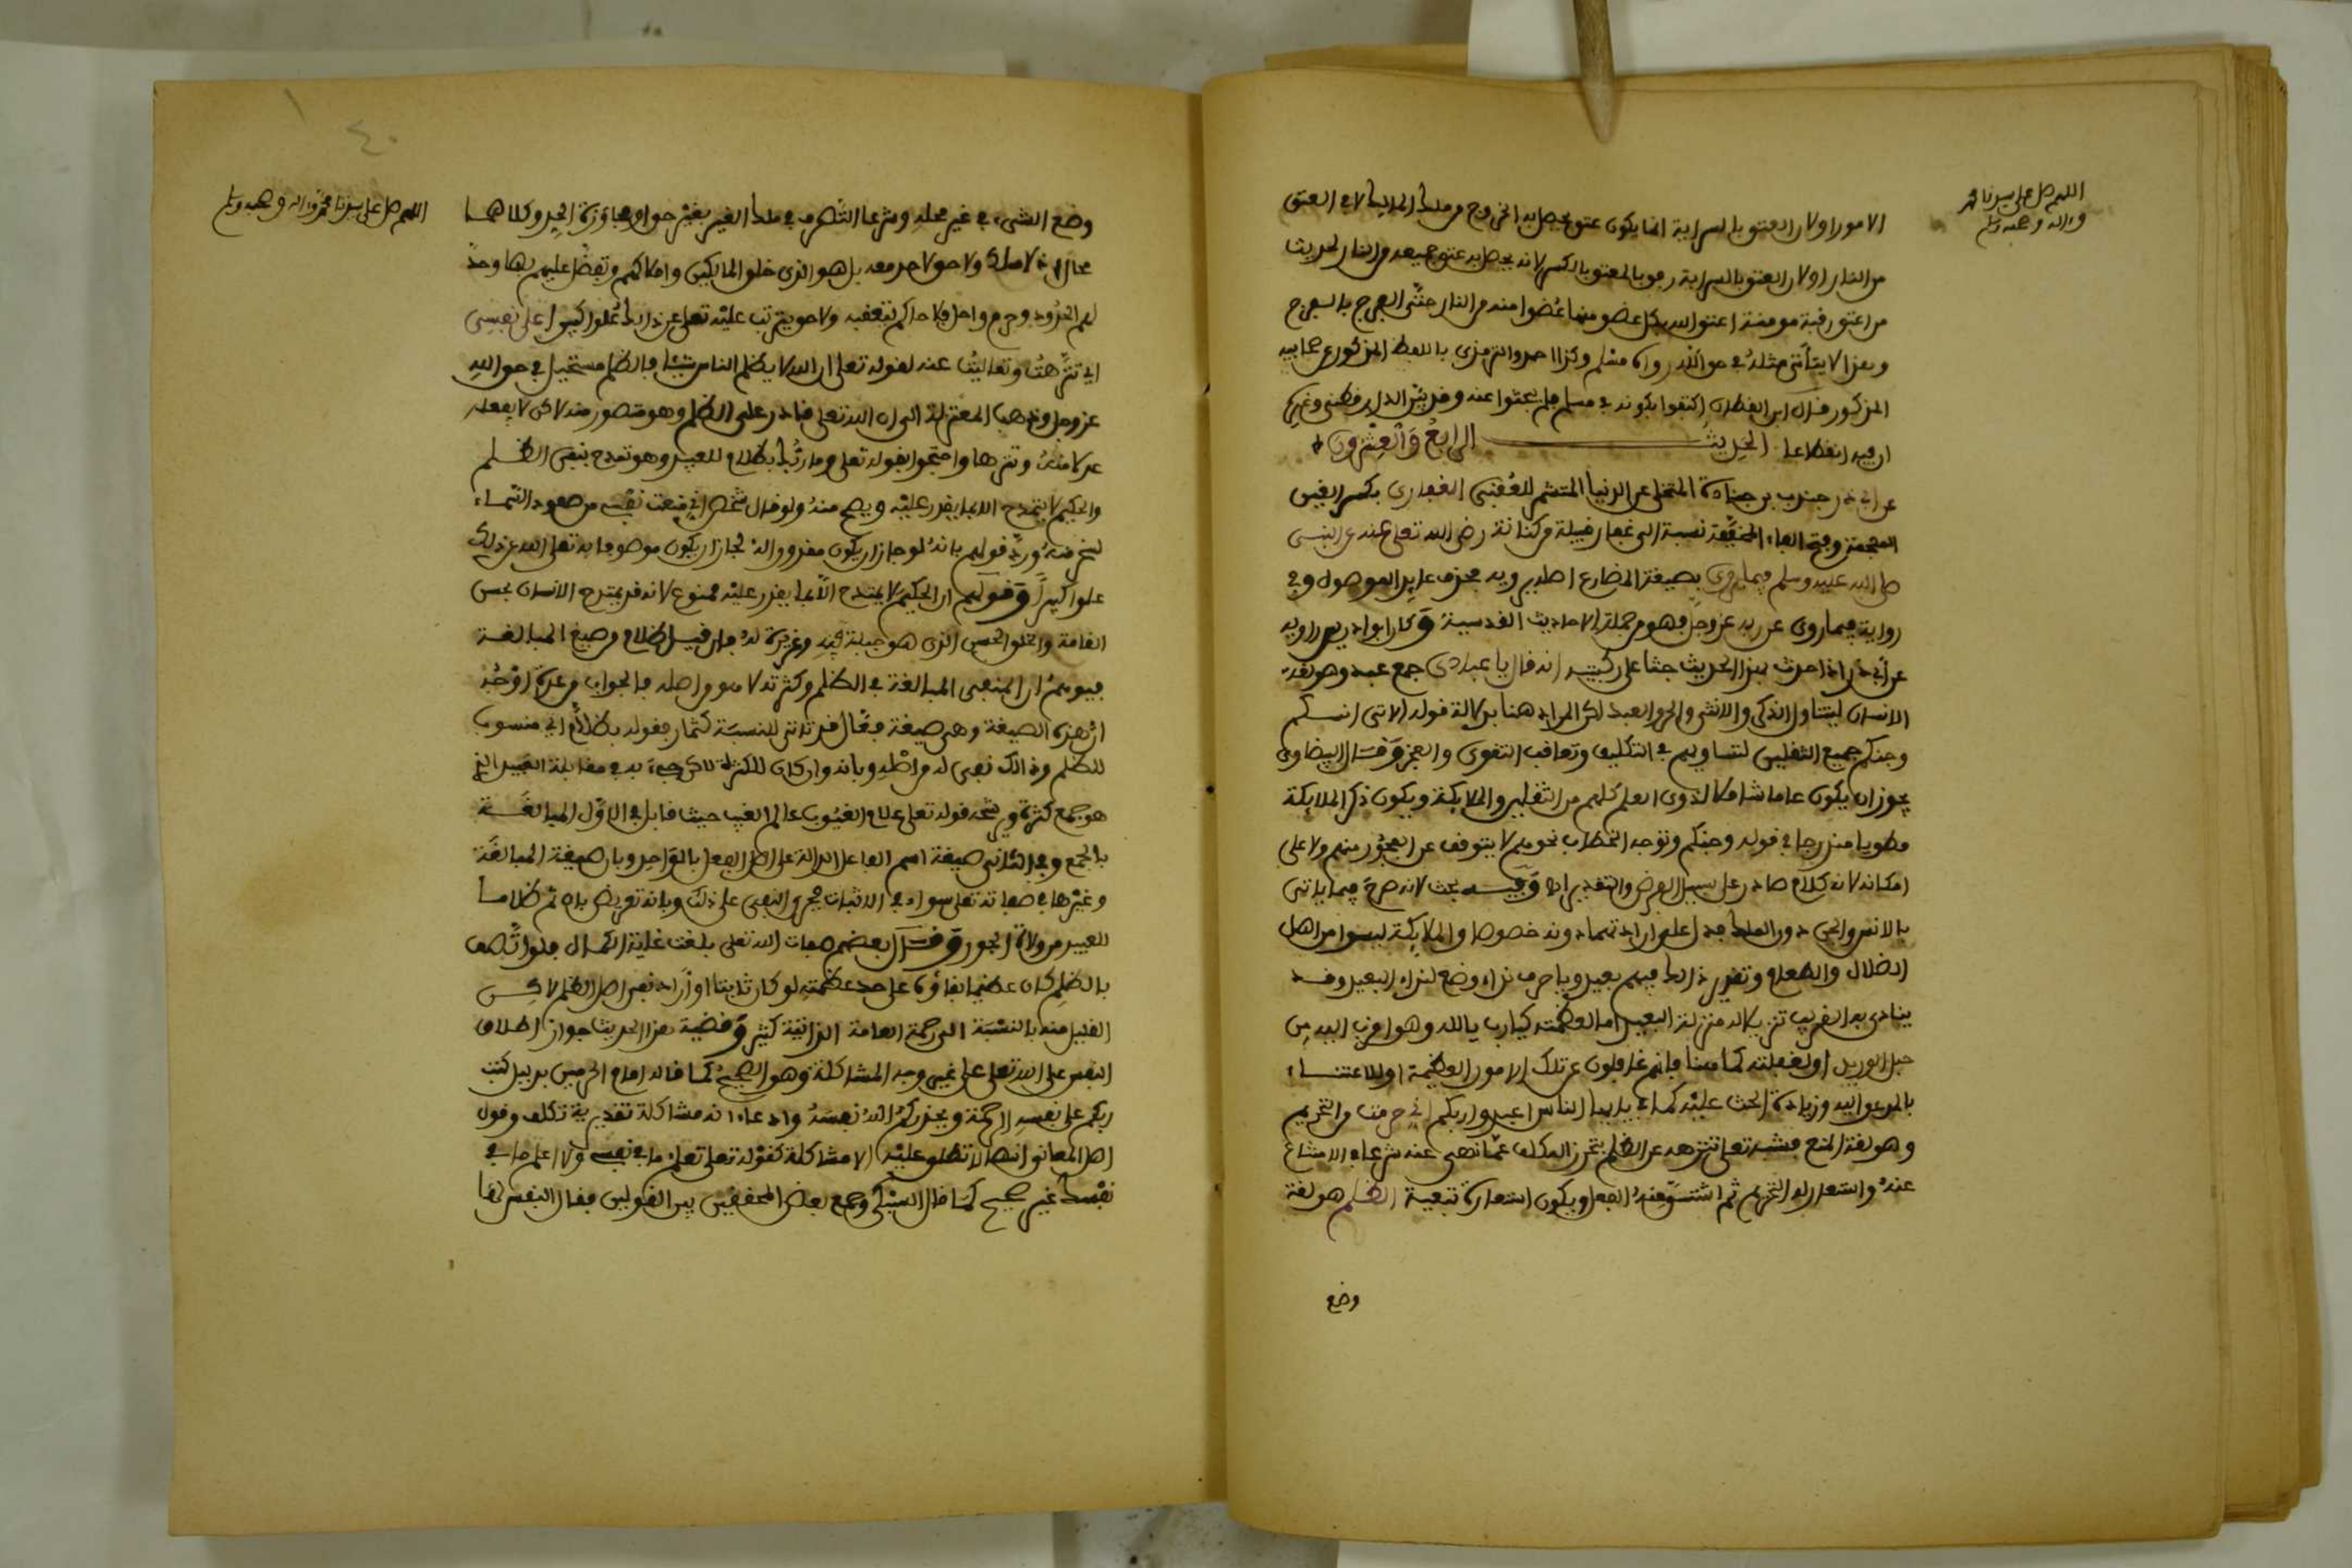 اللهم صل على سيدنا محمد
وءاله وصحبه وسلم
الامور اولان العتق بالسراية انما يكون عتق يحصل به الخروج من ملك المالك لا في العتق
من النار اولان العتق بالسراية دون المعتق بالكسر لانه يحصل به عتق جميعه من النار لحديث
من اعتق رقبة مومنة اعتق الله بكل عضو منها عضوا منه من النار حتى الفرج بالفرج
وهذا لا يتأتى مثله في حق الله رواه مسلم وكذا احمد والترمذي باللفظ المذكور عن صحابيه
المذكور قال ابن القطان اكتفوا بكونه في مسلم فلم يبحثوا عنه وقد بين الدارقطني وغيره
ان فيه انقطاعا الحديث الرابع والعشرون
عن ابي ذر جندب بن جنادة المتخلي عن الدنيا المتشمر للعقبى الغفاري بكسر الغين
المعجمة وفتح الفاء المخففة نسبة الى غفار قبيلة من كنانة رضي الله تعلى عنه عن النبي
صلى الله عليه وسلم فيما يروي بصيغة المضارع اصله يرويه بحذف عايد الموصول وفي
رواية فيما روى عن ربه عز وجل فهو من جملة الاحاديث القدسية وكان ابو ادريس راويه
عن ابي ذر اذا حدث بهذا الحديث جثا على ركبتيه انه قال يا عبادي جمع عبد وهو لغة
الانسان ليتناول الذكر والانثى والحر والعبد لكن المراد هنا بدلالة قوله الاتي انسكم
وجنكم جميع الثقلين لتساويهم في التكليف وتعاقب التقوى والفجر وقال البيضاوي
يجوز ان يكون عاما شاملا لذوي العلم كلهم من الثقلين والملايكة ويكون ذكر الملايكة
مطويا مندرجا في قوله وجنكم وتوجه الخطاب نحوهم لا يتوقف عن الفجور منهم ولا على
امكانه لانه كلام صادر على سبيل الفرض والتقدير اه وفيه بحث لانه صرح فيما ياتي
بالانس والجن دون الملك فدل على ارادتهما دونه خصوصا والملايكة ليسوا من اهل
الضلال والطعام وتقرير ذلك فيهم بعيد ويا حرف نداء وضع لنداء البعيد وقد
ينادى به القريب تنزيلا له منزلة البعيد اما لعظمته كيا رب يا الله وهو اقرب اليه من
حبل الوريد او لغفلته كما هنا فانهم غافلون عن تلك الامور العظيمة او للاعتناء
بالمدعو اليه وزيادة الحث عليه كما في يا ايها الناس اعبدوا ربكم اني حرمت من التحريم
وهو لغة المنع فشبه تعلى تنزهه عن الظلم بتحرز المكلف عما نهى عنه شرعا في الامتناع
عنه واستعار له التحريم ثم اشتق منه الفعل ويكون استعارة تبعية الظلم هو لغة
وضع
اللهم صل على سيدنا محمد وءاله وصحبه وسلم
٤٠
وضع الشيء في غير محله وشرعا التصرف في ملك الغير بغير حق او مجاوزة الحد وكلاهما
محال اذ لا ملك ولا حق لاحد معه بل هو الذي خلق المالكين واملاكهم وتفضل عليهم بها وحد
لهم الحدود وحرم واحل فلا حاكم يتعقبه ولا حق يترتب عليه تعلى عن ذلك علوا كبيرا على نفسي
اي تنزهت وتعاليت عنه لقوله تعلى ان الله لا يظلم الناس شيئا فالظلم مستحيل في حق الله
عز وجل وذهب المعتزلة الى ان الله تعلى قادر على الظلم وهو متصور منه لاكن لا يفعله
عدلا منه وتنزها واحتجوا بقوله تعلى وما ربك بظلام للعبيد وهو تمدح بنفي الظلم
والحكيم لا يتمدح الا بما يقدر عليه ويصح منه ولو قال شخص اني منعت نفسي من صعود السماء
لسخر منه ورد قولهم بانه لو جاز ان يكون مقدورا له لجاز ان يكون موصوفا به تعلى الله عن ذلك
علوا كبيرا وقولهم ان الحكيم لا يمتدح الا بما يقدر عليه ممنوع لانه قد يمتدح الانسان بحسن
القامة والخلق الحسن الذي هو جبلة فيه وغريزة له فان قيل ظلام من صيغ المبالغة
فيوهم ان المنفي المبالغة في الظلم وكثرته لا هو من اصله فالجواب من عدة اوجه
ان هذه الصيغة وهي صيغة فعال قد تاتي للنسبة كتمار فقوله بظلام اي منسوب
للظلم وذلك نفي له من اصله وبانه وان كان للكثرة لاكن جيء به في مقابلة العبيد الذي
هو جمع كثرة ويرشحه قوله تعلى علام الغيوب عالم الغيب حيث قابل في الاول المبالغة
بالجمع وفي الثاني صيغة اسم الفاعل الدالة على اصل الفعل بالواحد وبان صيغة المبالغة
وغيرها في صفاته تعلى سواء في الاثبات فجرى النفي على ذلك وبانه تعريض بان ثم ظلاما
للعبيد من ولاة الجور وقال بعضهم صفات الله تعلى بلغت غاية الكمال فلو اتصف
بالظلم كان عظيما فنفاه على حد عظمته لو كان ثابتا او اراد نفي اصل الظلم لاكن
القليل منه بالنسبة الى رحمته العامة الذاتية كثير وقضية هذا الحديث جواز اطلاق
النفس على الله تعلى على غير وجه المشاكلة وهو الصحيح كما قاله امام الحرمين بدليل كتب
ربكم على نفسه الرحمة ويحذركم الله نفسه وادعاء انه مشاكلة تقديرية تكلف وقول
اهل المعاني انها لا تطلق عليه الا مشاكلة كقوله تعلى تعلم ما في نفسي ولا اعلم ما في
نفسك غير صحيح كما قال السبكي وجمع بعض المحققين بين القولين فقال النفس لها